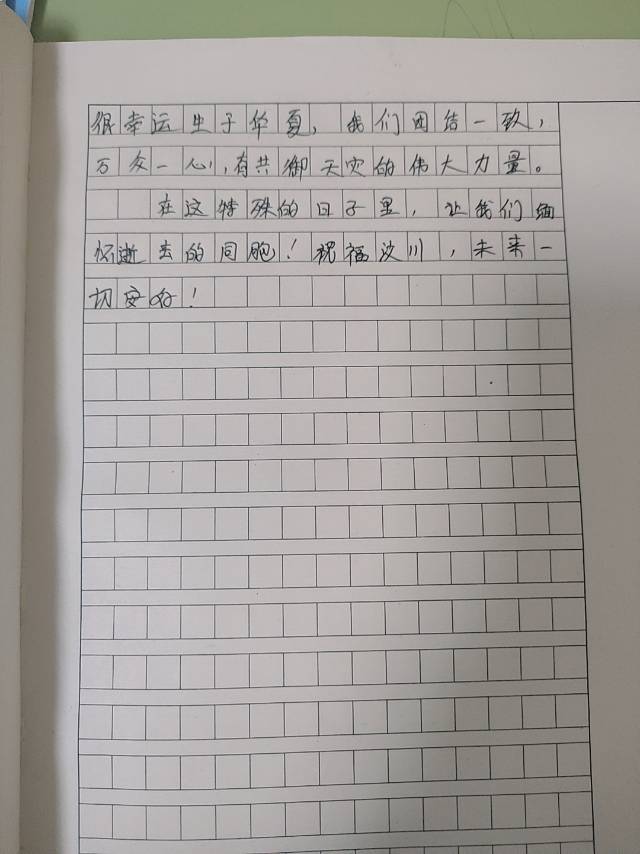 很幸运生于华夏，我们团结一致，
万众一心，有共御天灾的伟大力量。
在这特殊的日子里，让我们缅
怀逝去的同胞！祝福汶川，未来一
切安好！